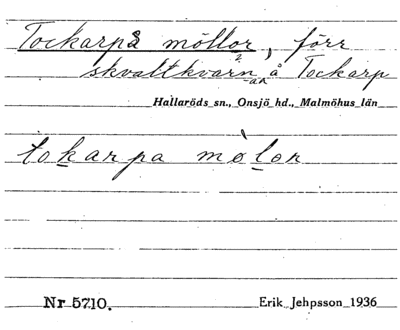 Tockarps möllor, förr
skvaltkvarn å Tockarp
-an
Hallaröds sn., Onsjö hd., Malmöhus län
tokarpa mølor
Nr 5710.
Erik Jehpsson 1936